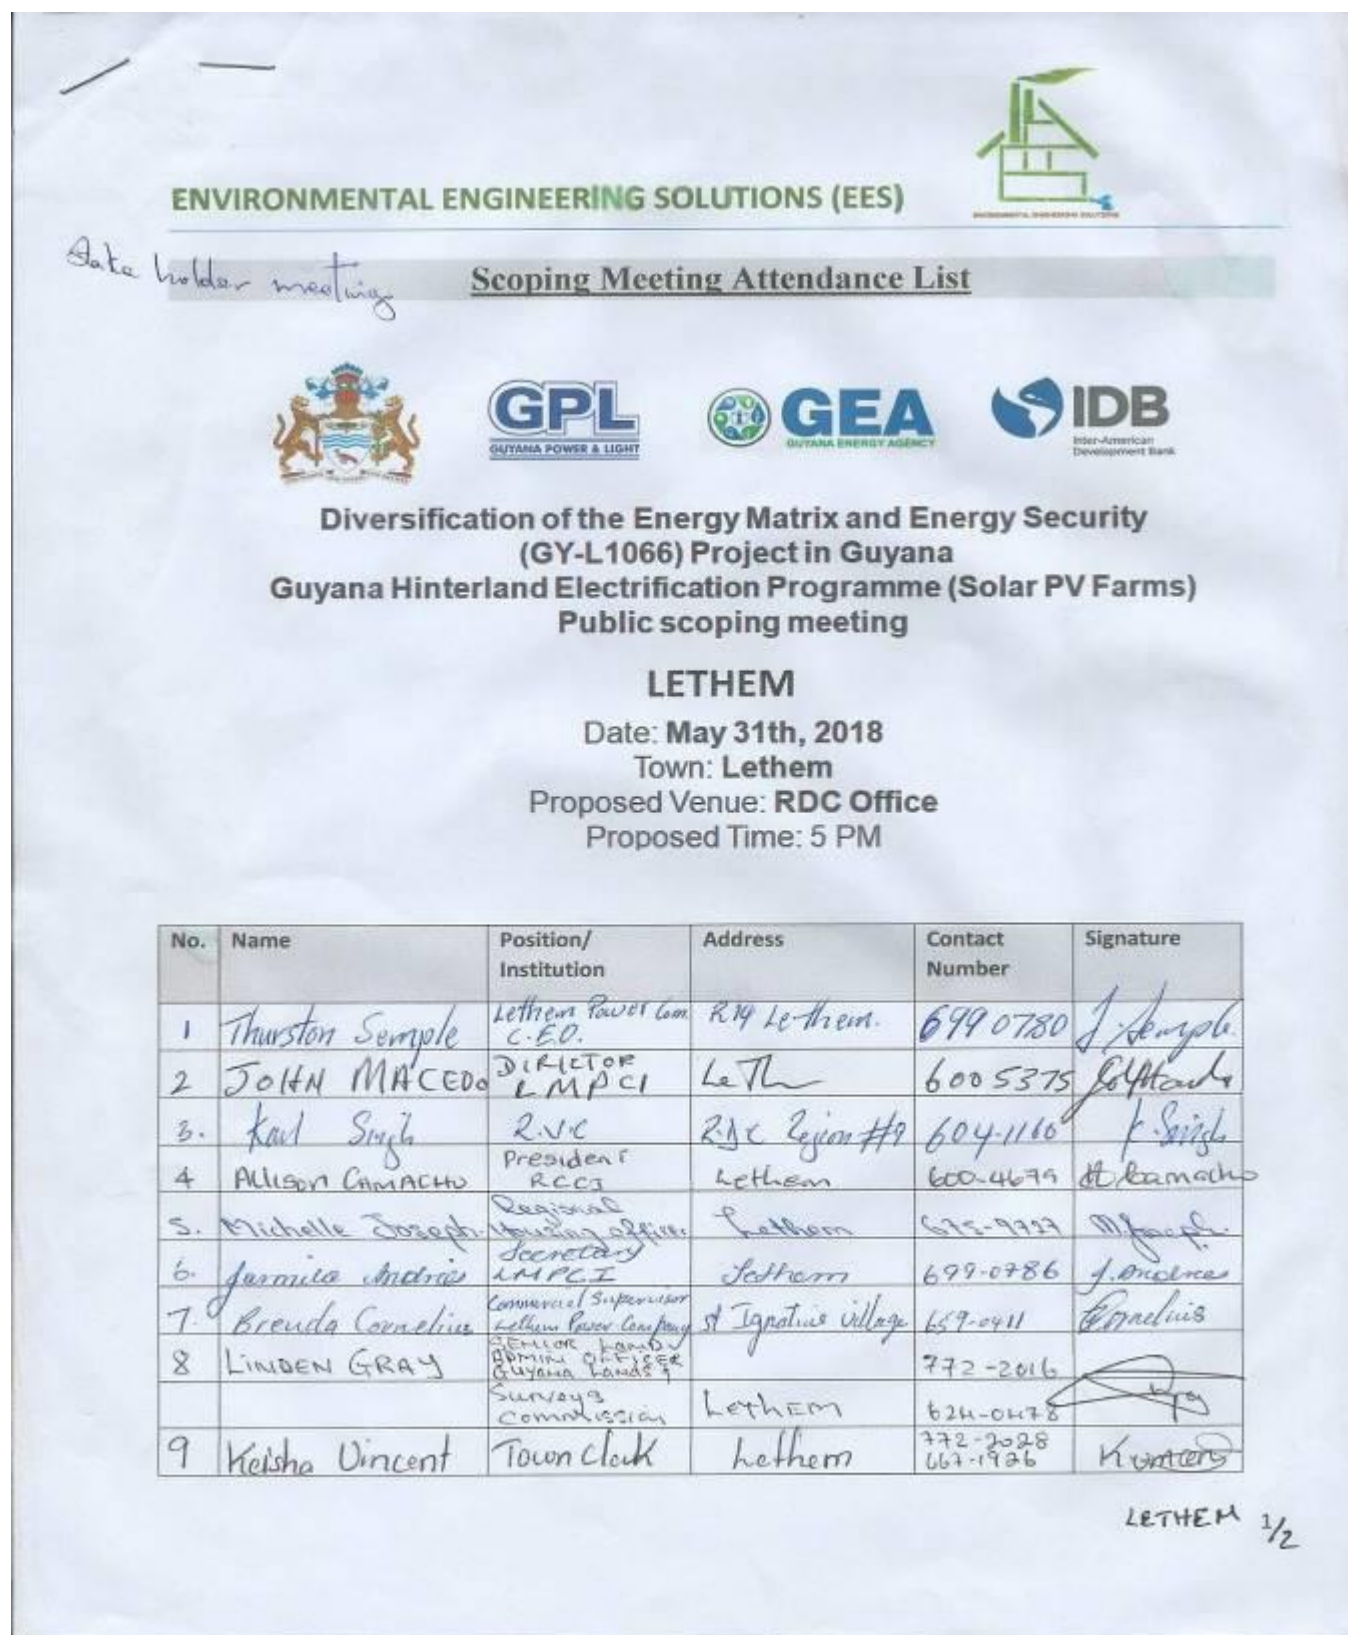 ENVIRONMENTAL ENGINEERING SOLUTIONS (EES)
ENVIRONMENTAL ENGINEERING SOLUTIONS
Stake holder meeting
Scoping Meeting Attendance List
GPL
GUYANA POWER & LIGHT
GEA
GUYANA ENERGY AGENCY
IDB
Inter-American
Development Bank
Diversification of the Energy Matrix and Energy Security
(GY-L1066) Project in Guyana
Guyana Hinterland Electrification Programme (Solar PV Farms)
Public scoping meeting
LETHEM
Date: May 31th, 2018
Town: Lethem
Proposed Venue: RDC Office
Proposed Time: 5 PM
No. Name Position/ Institution Address Contact Number Signature
1 Thurston Semple Lethem Power Com. C.E.O. R#9 Lethem. 699 0780 J. Semple.
2 JOHN MACEDO DIRECTOR LMPCI Leth 600 5375
3. Karl Singh R.V.C R.D.C Region #9 604-1160 K. Singh
4 Allison CAMACHO President RCCI Lethem 600-4679 A Camacho
5. Michelle Joseph Regional Housing officer Lethem 675-9727 M Joseph.
6. Jarmila Andries Secretary LMPCI Lethem 699-0786 J. Andries
7. Brenda Cornelius Commercial Supervisor Lethem Power Company St Ignatius village 659-0411 Cornelius
8 LINDEN GRAY SENIOR LAND ADMIN OFFICER GUYANA LANDS & 772-2016
Surveys Commission LETHEM 624-0478
9 Keisha Vincent Town Clerk Lethem 772-2028 667-1926 KVincent
LETHEM 1/2